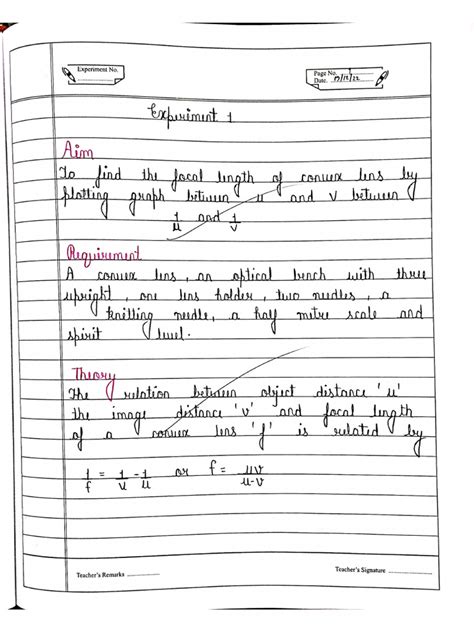 Experiment No.
Page No. 1
Date. 17/12/22
Experiment 1
Aim
To find the focal length of convex lens by
plotting graph between u and v between
1/u and 1/v
Requirement
A convex lens, an optical bench with three
upright, one lens holder, two needles, a
knitting needle, a half metre scale and
spirit level.
Theory
The relation between object distance 'u'
the image distance 'v' and focal length
of a convex lens 'f' is related by
1/f = 1/v - 1/u or f = uv/u-v
Teacher's Remarks
Teacher's Signature